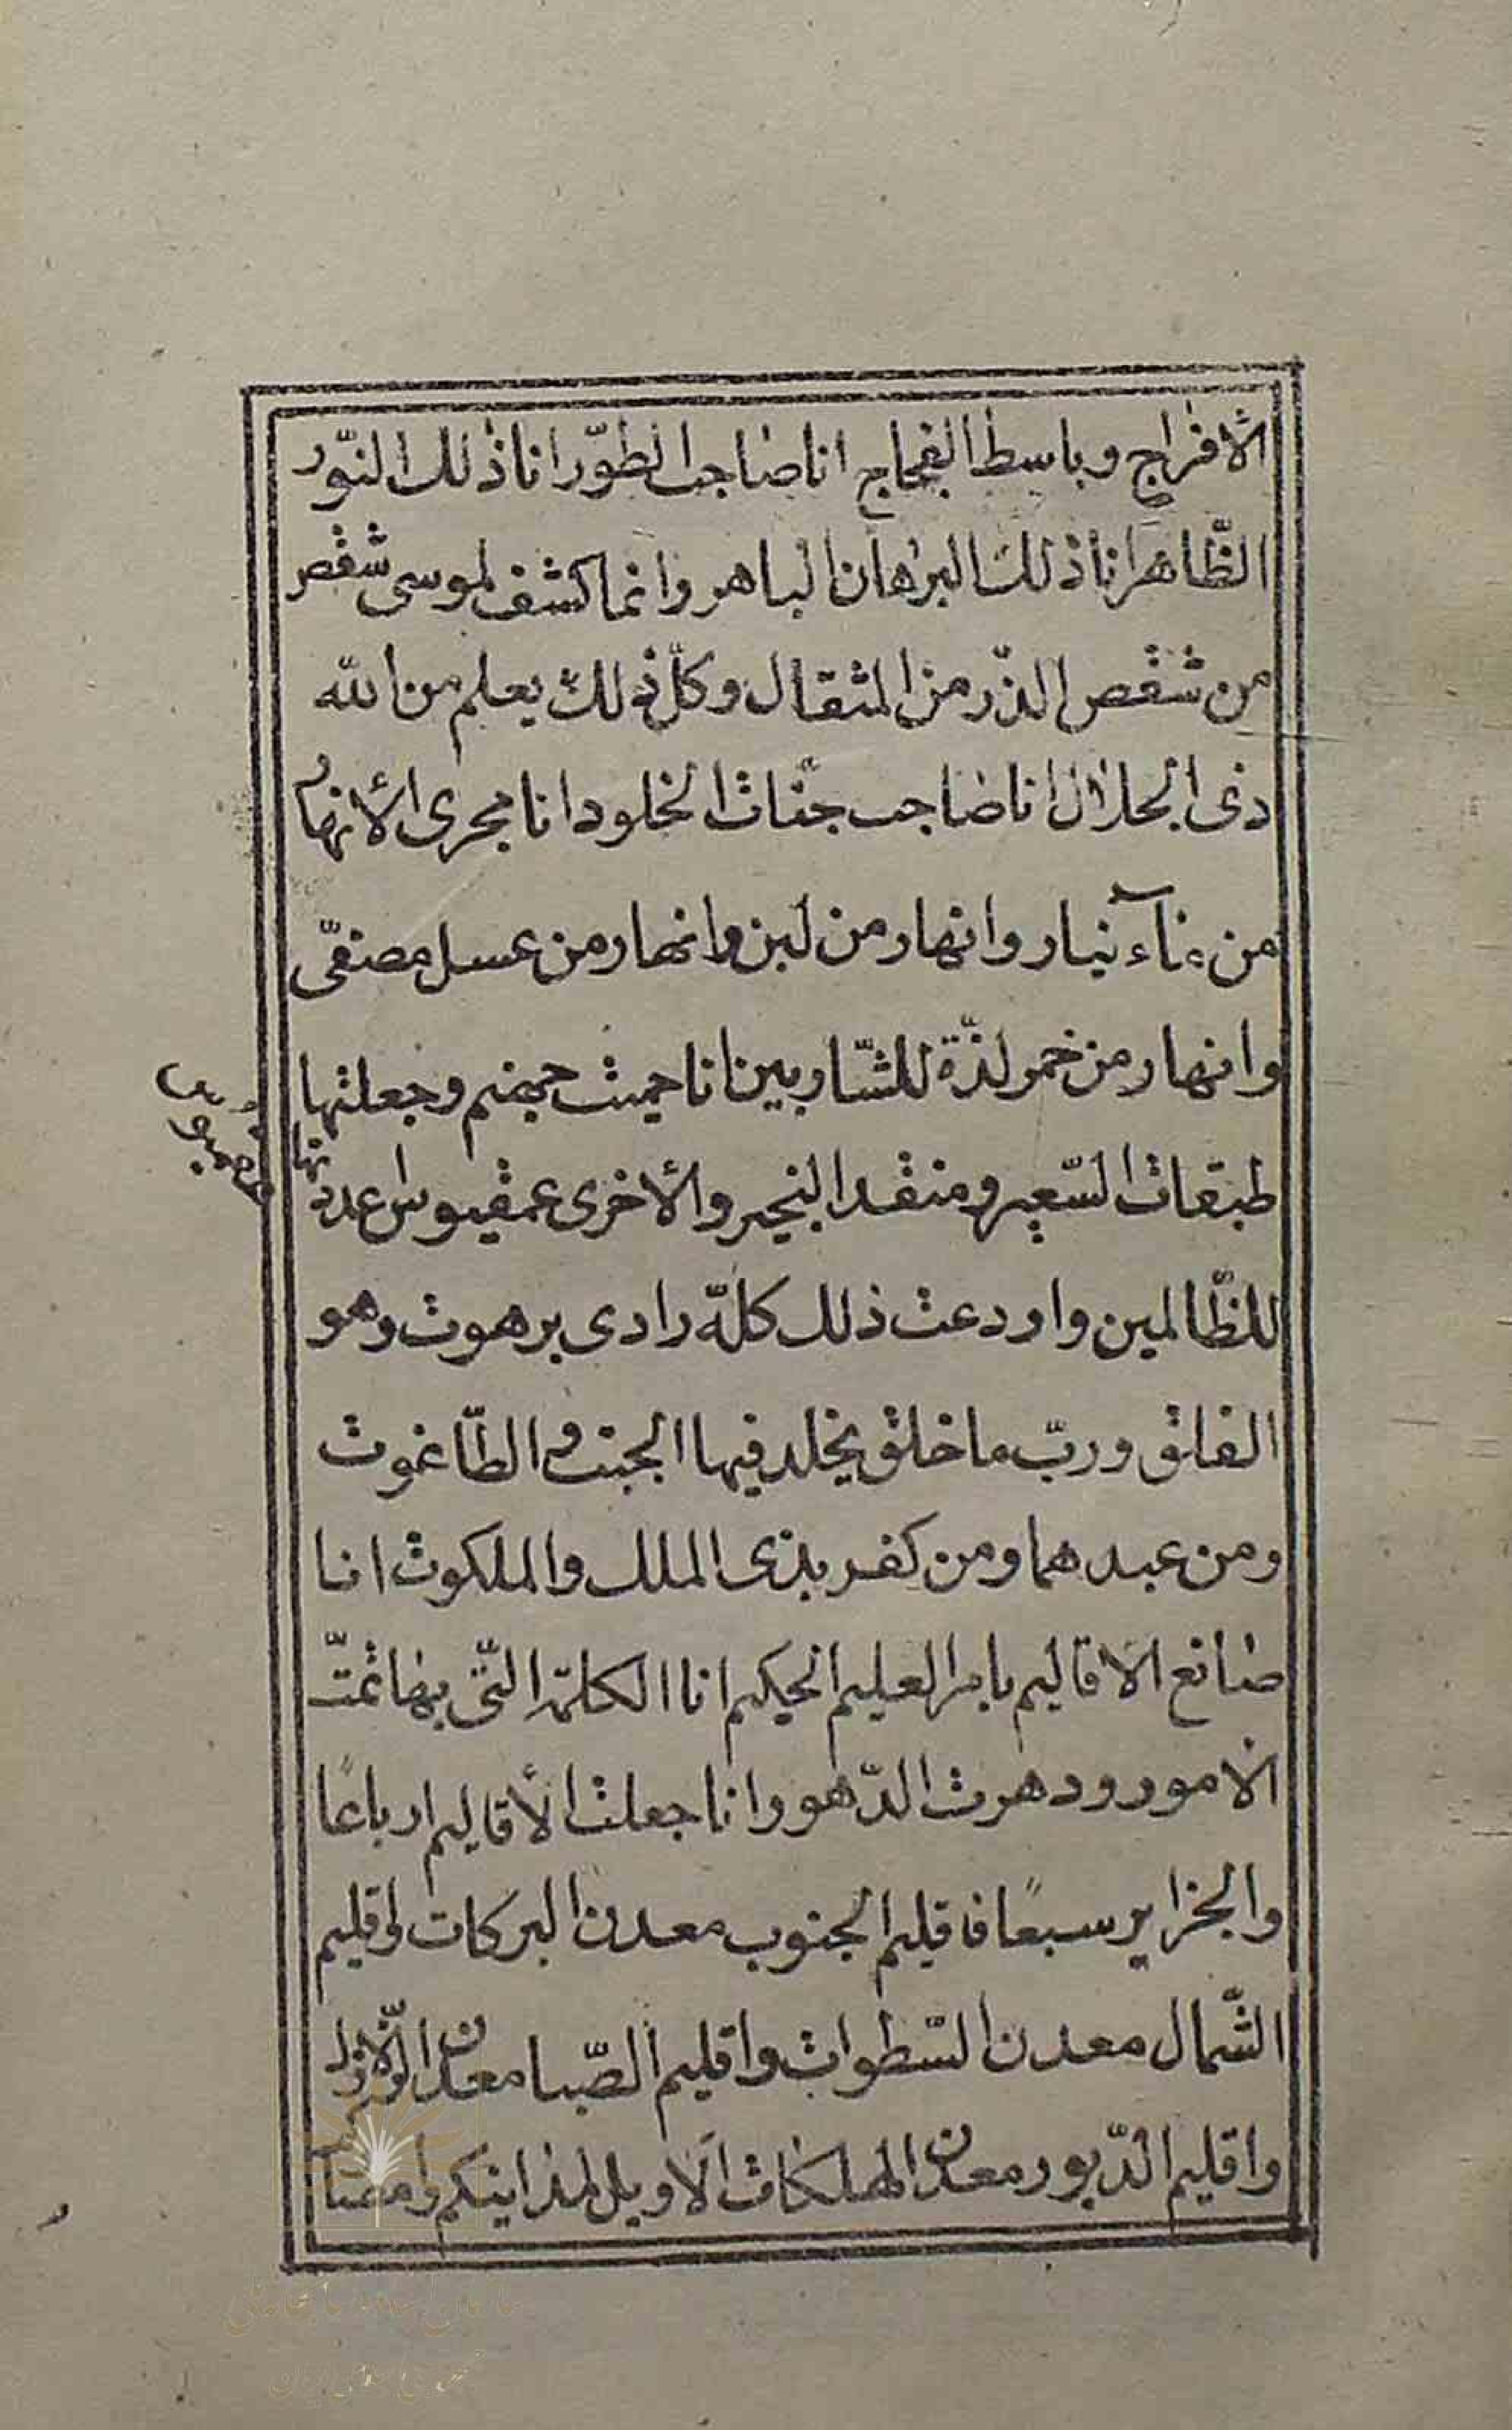 الافراج وباسط الفجاج انا صاحب الطّور انا ذلك النّور
الظّاهر انا ذلك البرهان الباهر وانما كشف لموسى شقص
من شقص الذّر من المثقال وكلّ ذلك يعلم من الله
ذى الجلال انا صاحب جنّات الخلود انا مجرى الأنهار
من مآء تيار وانهار من لبن وانهار من عسل مصفّى
وانهار من خمر لذّة للشّاربين انا حميت جهنم وجعلتها
طبقات السّعير ومنقد النحير والأخرى عمقيوس عددتها
للظّالمين واودعت ذلك كلّه وادى برهوت وهو
الفلق وربّ ما خلق يخلد فيها الجبت والطّاغوت
ومن عبدهما ومن كفر بذى الملك والملكوت انا
صانع الاقاليم بامر العليم الحكيم انا الكلمة التّى بها تمّت
الامور ودهرت الدّهور وانا جعلت الأقاليم ارباعًا
والجزاير سبعًا فاقليم الجنوب معدن البركات واقليم
الشّمال معدن السّطوات واقليم الصّبا معدن الزّلازل
واقليم الدّبور معدن المهلكات الا ويل لمداينكم وامصا